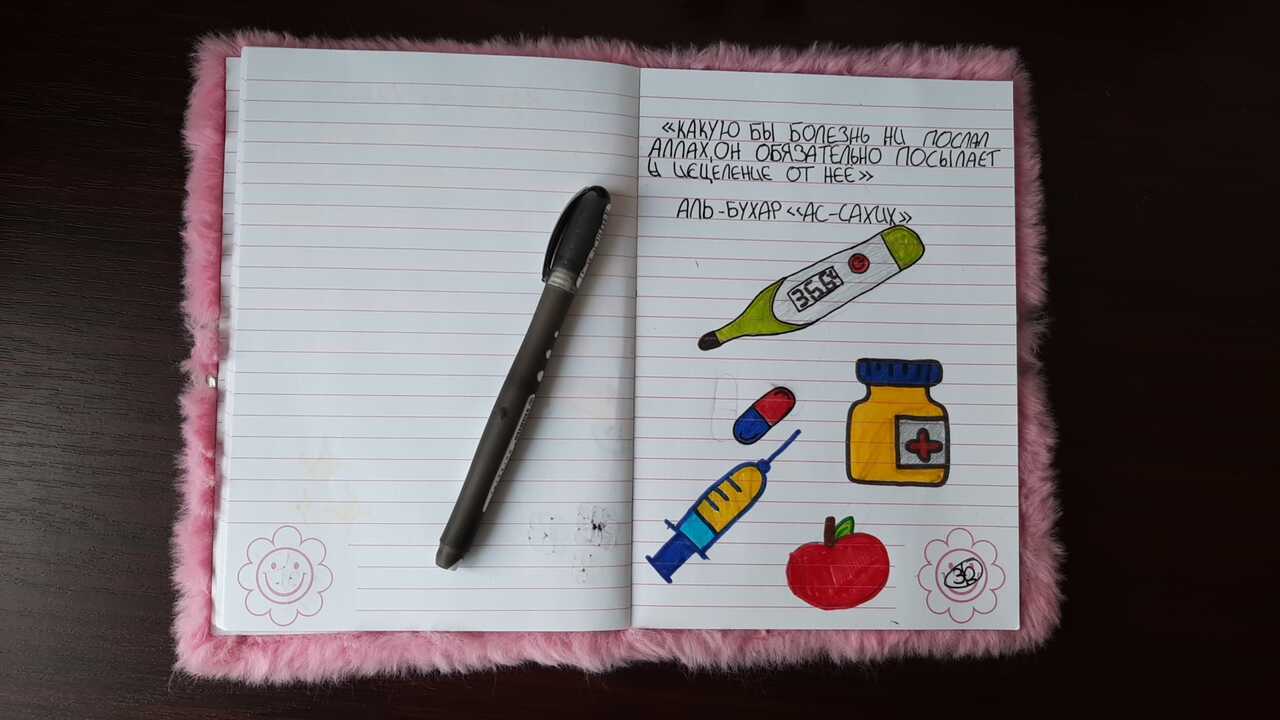 «КАКУЮ БЫ БОЛЕЗНЬ НИ ПОСЛАЛ
АЛЛАХ, ОН ОБЯЗАТЕЛЬНО ПОСЫЛАЕТ
И ИСЦЕЛЕНИЕ ОТ НЕЕ»
АЛЬ-БУХАР «АС-САХИХ»
36,6